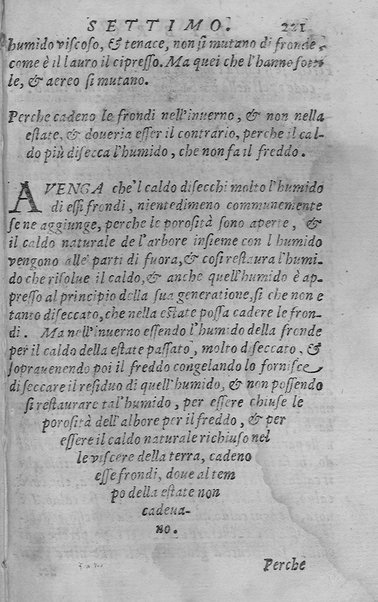 SETTIMO. 221
humido viscoso, & tenace, non si mutano di fronde,
come è il lauro il cipresso. Ma quei che l'hanno sotti
le, & aereo si mutano.
Perche cadeno le frondi nell'inuerno, & non nella
estate, & doueria esser il contrario, perche il cal-
do più disecca l'humido, che non fa il freddo.
AVENGA che'l caldo disecchi molto l'humido
di essi frondi, nientedimeno communemente
se ne aggiunge, perche le porosità sono aperte, &
il caldo naturale de l'arbore insieme con l humido
vengono alle parti di fuora, & cosi restaura l'humi-
do che risolue il caldo, & anche quell'humido è ap-
presso al principio della sua generatione, si che non e
tanto diseccato, che nella estate possa cadere le fron-
di. Ma nell'inuerno essendo l'humido della fronde
per il caldo della estate passato, molto diseccato, &
soprauenendo poi il freddo congelando lo fornisce
di seccare il residuo di quell'humido, & non possendo
si restaurare tal'humido, per essere chiuse le
porosità dell'albore per il freddo, & per
essere il caldo naturale richiuso nel
le viscere della terra, cadeno
esse frondi, doue al tem
po della estate non
cadeua-
no.
Perche